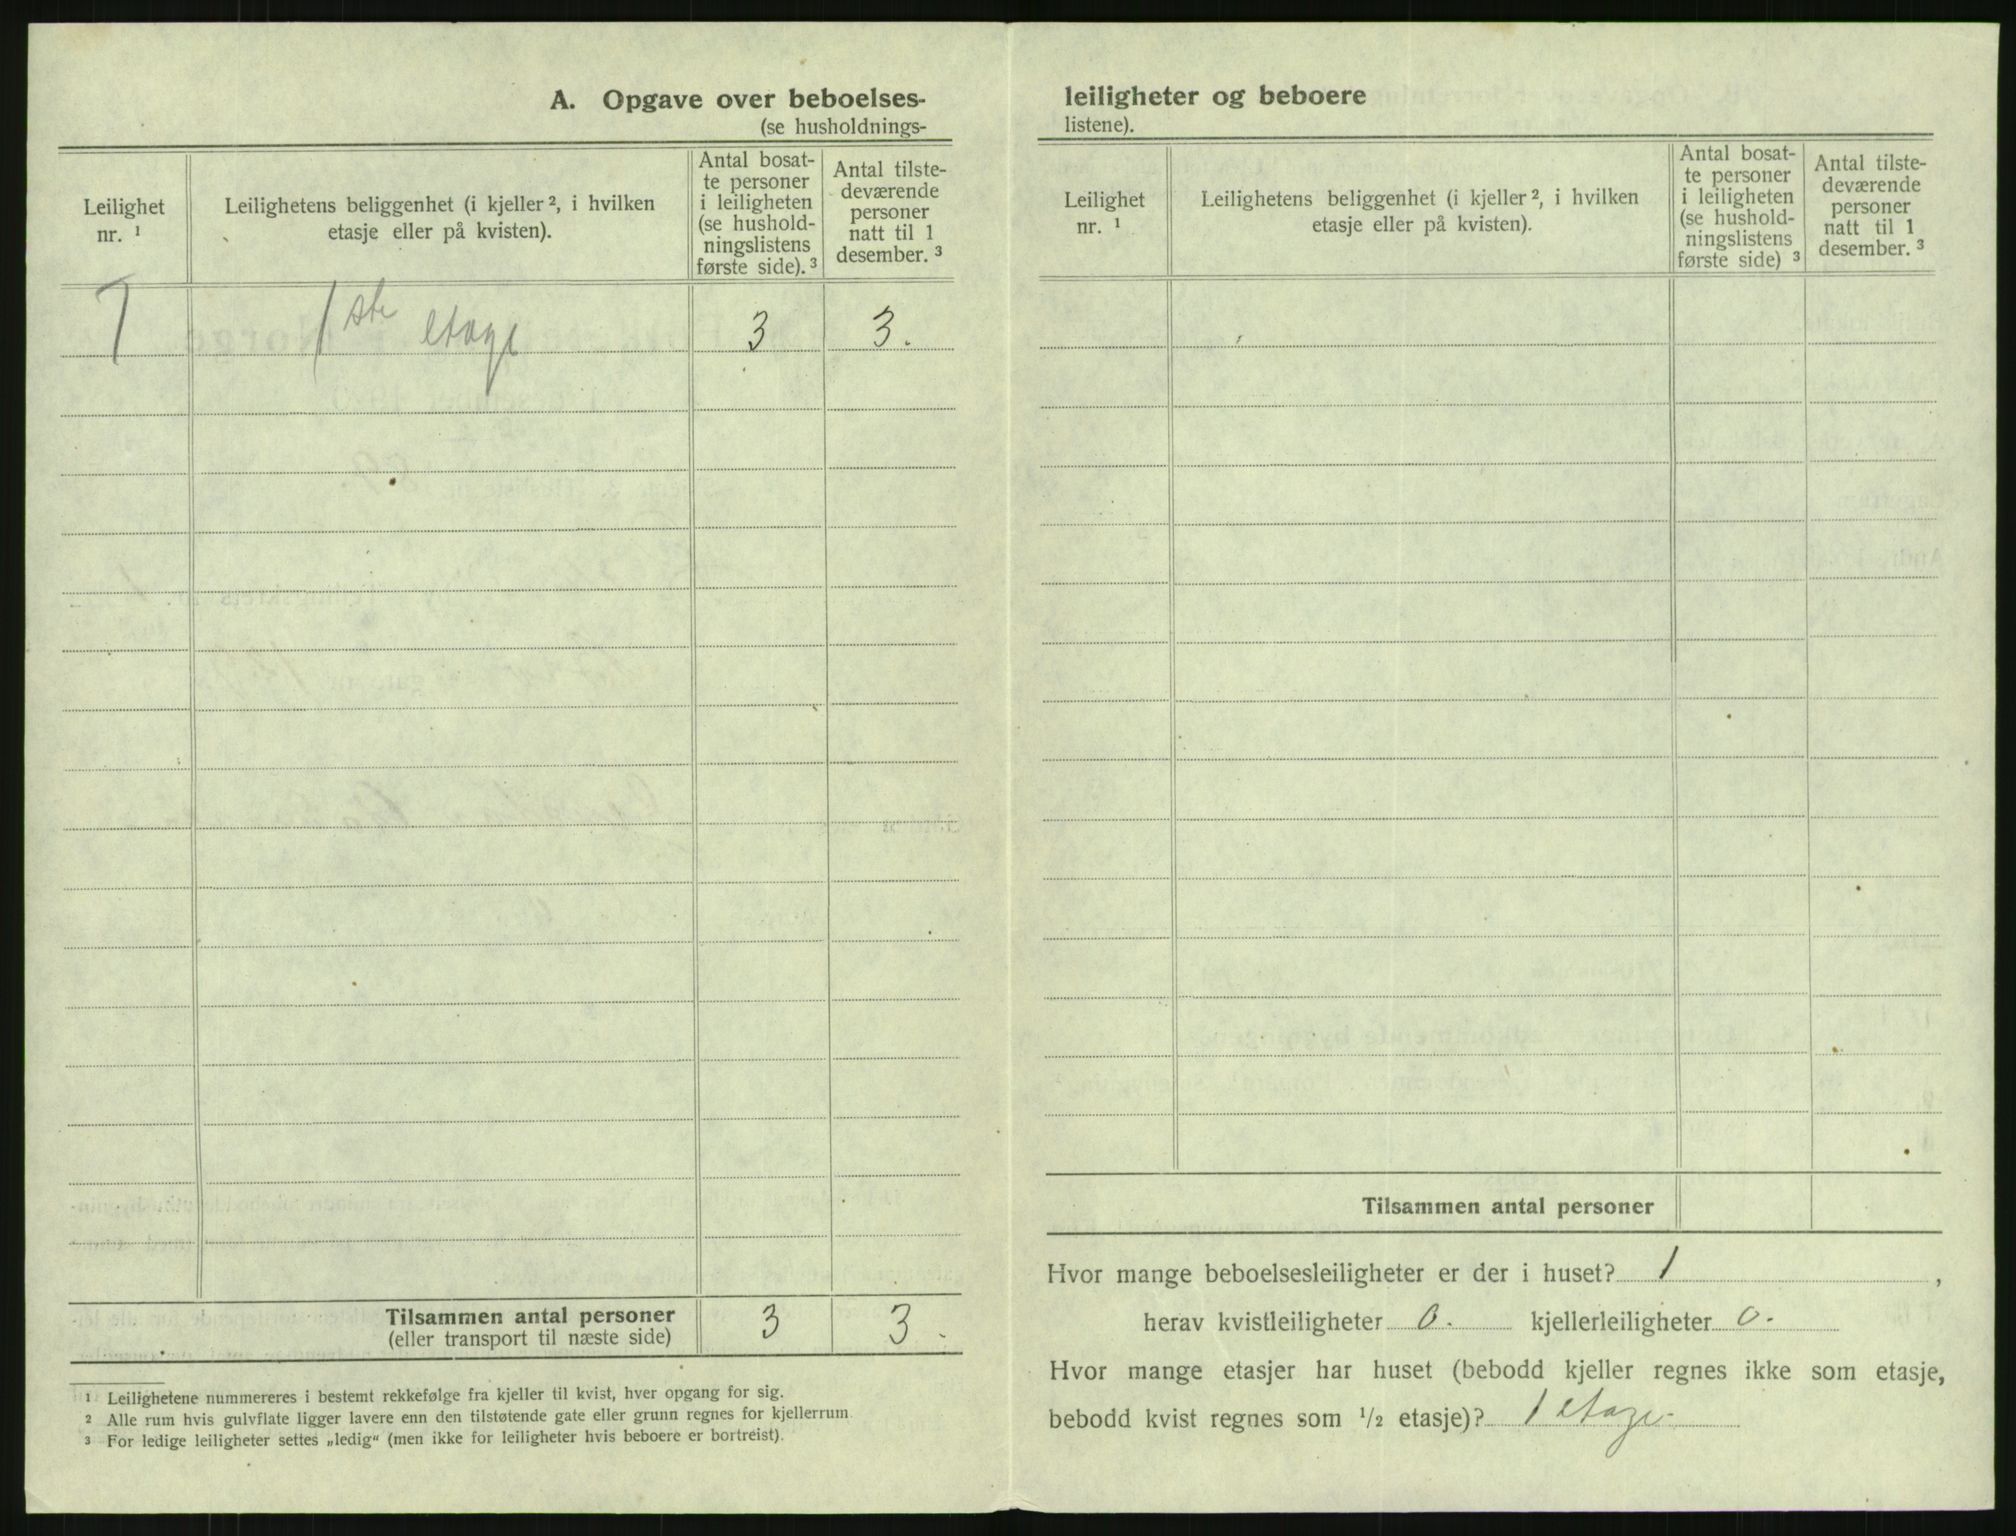 A. Opgave over beboelses-
(se husholdnings-
Leilighet
nr. ¹
Leilighetens beliggenhet (i kjeller ², i hvilken
etasje eller på kvisten).
Antal bosat-
te personer
i leiligheten
(se hushold-
ningslistens
første side). ³
Antal tilste-
deværende
personer
natt til 1
desember. ³
1 1ste etage 3 3.
Tilsammen antal personer 3 3.
(eller transport til næste side)
¹ Leilighetene nummereres i bestemt rekkefølge fra kjeller til kvist, hver opgang for sig.
² Alle rum hvis gulvflate ligger lavere enn den tilstøtende gate eller grunn regnes for kjellerrum.
³ For ledige leiligheter settes „ledig“ (men ikke for leiligheter hvis beboere er bortreist).
leiligheter og beboere
listene).
Leilighet
nr. ¹
Leilighetens beliggenhet (i kjeller ², i hvilken
etasje eller på kvisten).
Antal bosat-
te personer
i leiligheten
(se hushold-
ningslistens
første side) ³
Antal tilste-
deværende
personer
natt til 1
desember. ³
Tilsammen antal personer
Hvor mange beboelsesleiligheter er der i huset? 1 ,
herav kvistleiligheter 0. kjellerleiligheter 0.
Hvor mange etasjer har huset (bebodd kjeller regnes ikke som etasje,
bebodd kvist regnes som ½ etasje)? 1 etage.